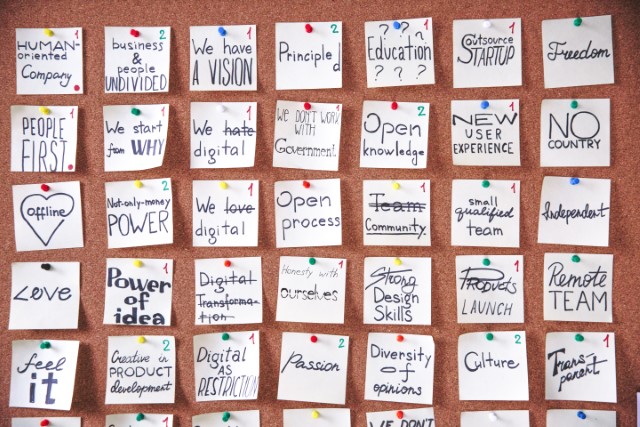 HUMAN-
oriented
Company
2
business
&
people
UNDIVIDED
1
We have
A VISION
2
Principled
2
? ? ?
Education
? ? ?
1
Outsource
STARTUP
Freedom
1
PEOPLE
FIRST.
1
We start
from WHY
1
We hate
digital
1
WE DON'T WORK
WITH
Government
2
Open
knowledge
1
NEW
USER
EXPERIENCE
NO
COUNTRY
offline
2
Not-only-money
POWER
1
We love
digital
1
Open
process
1
Team
Community
1
small
qualified
team
Independent
Love
1
Power
of
idea
1
Digital
Transforma-
tion
1
Honesty with
ourselves
2
Strong
Design
Skills
1
PRODUCTS
LAUNCH
2
Remote
TEAM
feel
it
2
Creative in
PRODUCT
development
2
Digital
AS
RESTRICTION
2
Passion
Diversity
of
opinions
2
Culture
1
Trans
parent
WE DON'T